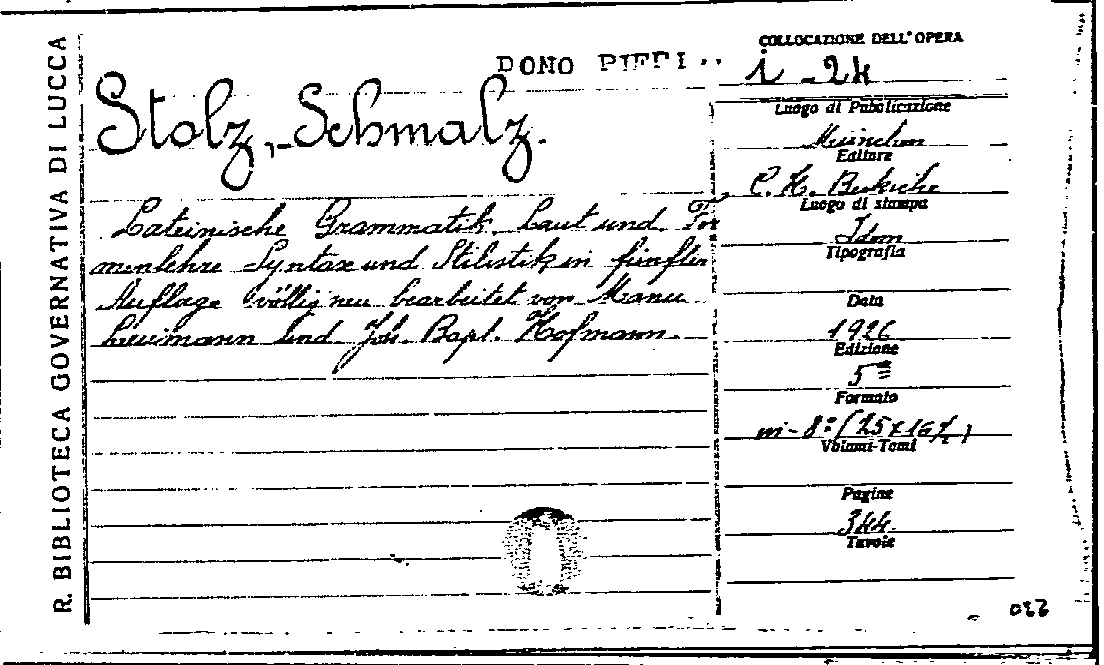 R. BIBLIOTECA GOVERNATIVA DI LUCCA
DONO
Stolz, Schmalz.
Lateinische Grammatik. Laut und For
menlehre Syntax und Stilistik in fünfter
Auflage völlig neu bearbeitet von Manu
Leumann und Joh. Bapt. Hofmann.
COLLOCAZIONE DELL'OPERA
i - 24
Luogo di Pubblicazione
München
Editore
C. H.
Luogo di stampa
Idem
Tipografia
Data
1926
Edizione
5ª
Formato
in-8° (25x16½)
Volumi-Tomi
Pagine
344.
Tavole